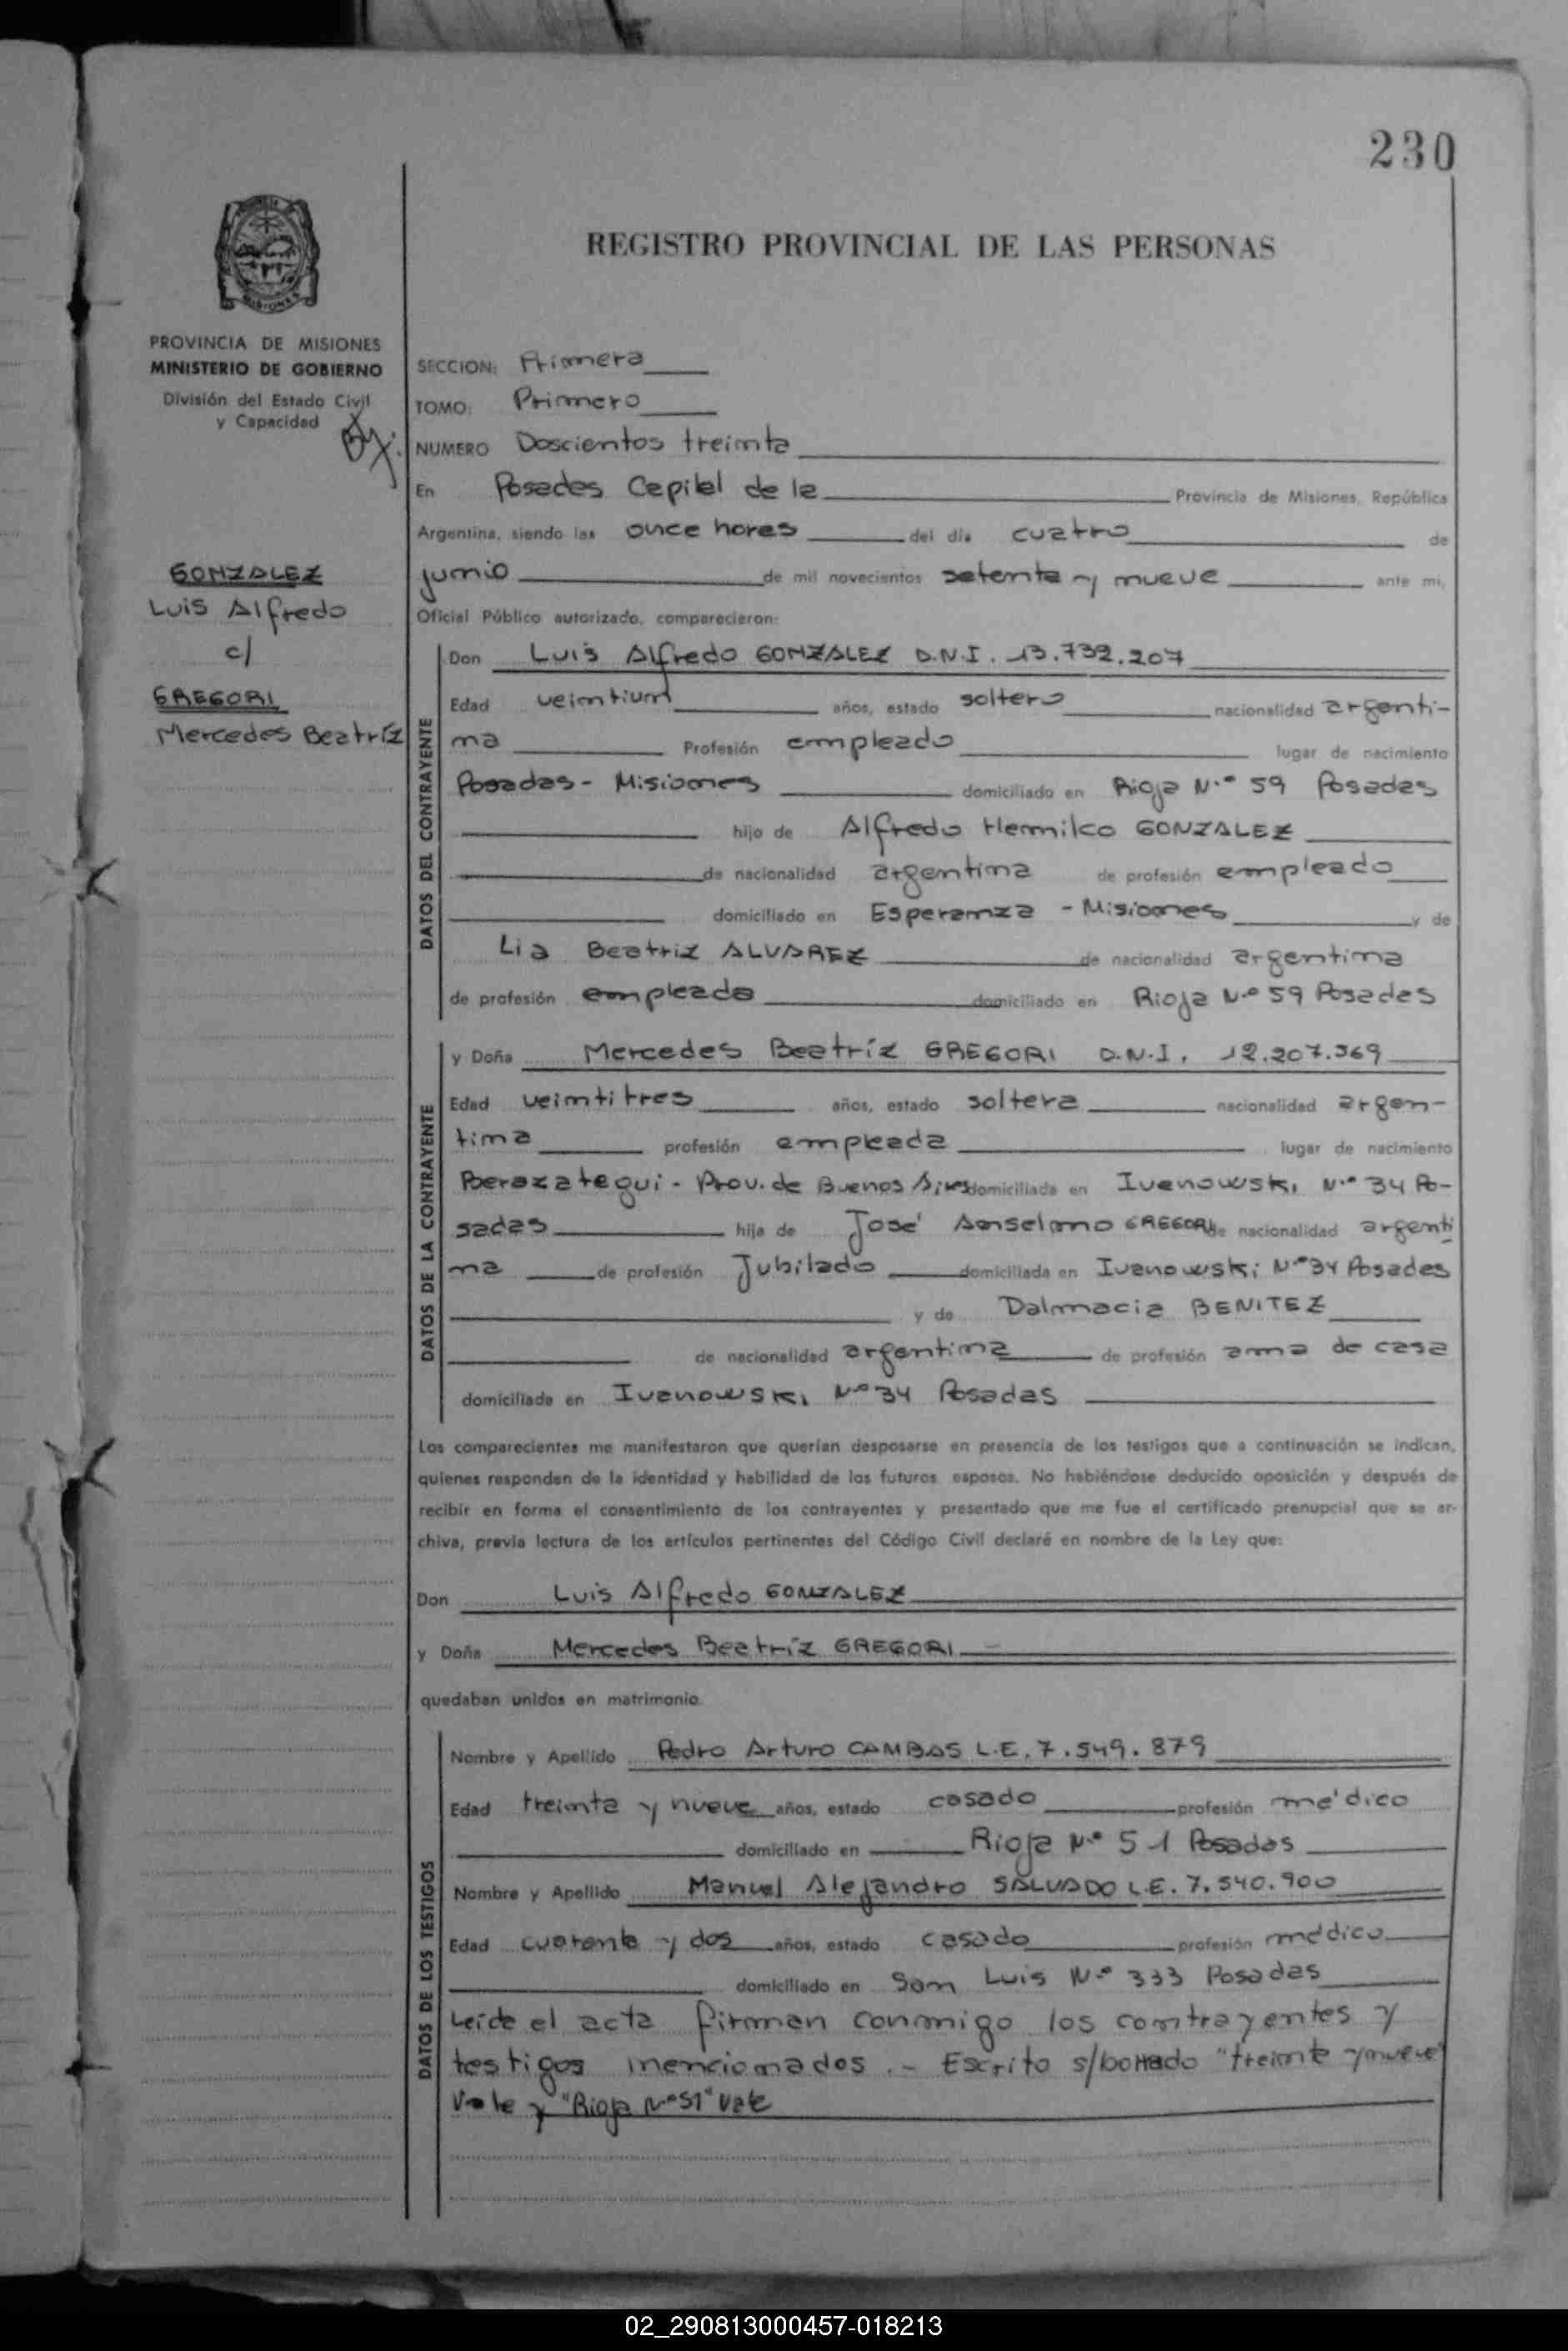 230
REGISTRO PROVINCIAL DE LAS PERSONAS
MISIONES
PROVINCIA DE MISIONES
MINISTERIO DE GOBIERNO
División del Estado Civil
y Capacidad
GONZALEZ
Luis Alfredo
c/
GREGORI
Mercedes Beatríz
SECCION: Primera
TOMO: Primero
NUMERO Doscientos treinta
En Posadas Capital de la Provincia de Misiones, República
Argentina, siendo las once horas del día cuatro de
junio de mil novecientos setenta y nueve ante mi,
Oficial Público autorizado, comparecieron:
DATOS DEL CONTRAYENTE
Don Luis Alfredo GONZALEZ D.N.I. 13.732.207
Edad veintiun años, estado soltero nacionalidad argenti-
na Profesión empleado lugar de nacimiento
Posadas - Misiones domiciliado en Rioja N.º 59 Posadas
hijo de Alfredo Hermilco GONZALEZ
de nacionalidad argentina de profesión empleado
domiciliado en Esperanza - Misiones y de
Lia Beatriz ALVAREZ de nacionalidad argentina
de profesión empleada domiciliado en Rioja N.º 59 Posadas
DATOS DE LA CONTRAYENTE
y Doña Mercedes Beatríz GREGORI D.N.I. 12.207.369
Edad veintitres años, estado soltera nacionalidad argen-
tina profesión empleada lugar de nacimiento
Berazategui - Prov. de Buenos Aires domiciliada en Ivanowski N.º 34 Po-
sadas hija de José Anselmo GREGORI de nacionalidad argenti
na de profesión Jubilado domiciliada en Ivanowski Nº 34 Posadas
y de Dalmacia BENITEZ
de nacionalidad argentina de profesión ama de casa
domiciliada en Ivanowski Nº 34 Posadas
Los comparecientes me manifestaron que querían desposarse en presencia de los testigos que a continuación se indican,
quienes responden de la identidad y habilidad de los futuros esposos. No habiéndose deducido oposición y después de
recibir en forma el consentimiento de los contrayentes y presentado que me fue el certificado prenupcial que se ar-
chiva, previa lectura de los artículos pertinentes del Código Civil declaré en nombre de la Ley que:
Don Luis Alfredo GONZALEZ
y Doña Mercedes Beatríz GREGORI
quedaban unidos en matrimonio.
DATOS DE LOS TESTIGOS
Nombre y Apellido Pedro Arturo CAMBAS L.E. 7.549.879
Edad treinta y nueve años, estado casado profesión médico
domiciliado en Rioja N.º 51 Posadas
Nombre y Apellido Manuel Alejandro SALVADO L.E. 7.540.900
Edad cuarenta y dos años, estado casado profesión médico
domiciliado en San Luis N.º 333 Posadas
Leída el acta firman conmigo los contrayentes y
testigos mencionados.- Escrito s/borrado "treinta y nueve"
Vale y "Rioja Nº 51" Vale
02_290813000457-018213